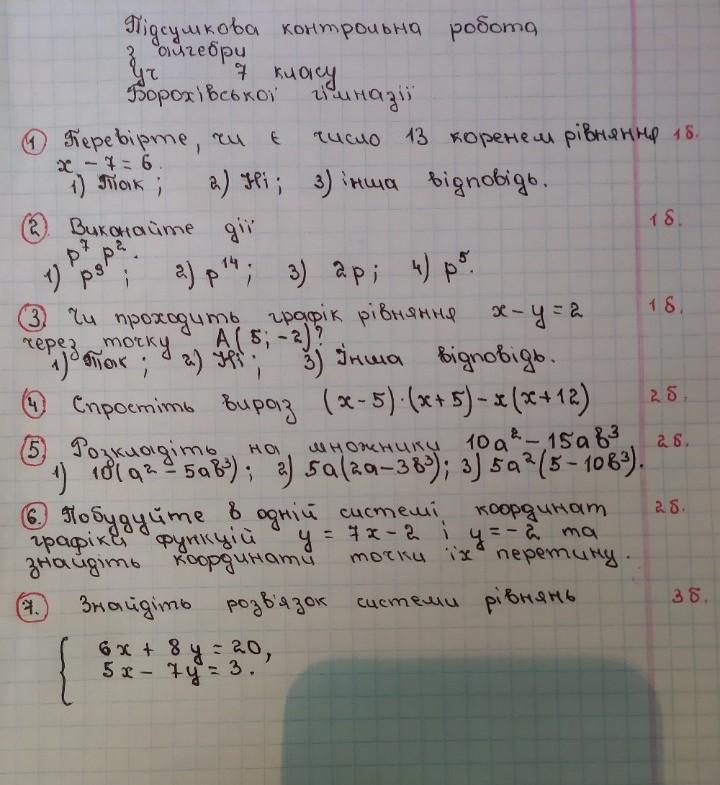 Підсумкова контрольна робота
з алгебри
уч 7 класу
Борохівської гімназії
1 Перевірте, чи є число 13 коренем рівняння 1б.
x - 7 = 6.
1) Так; 2) Ні; 3) інша відповідь.
2. Виконайте дії 1б.
p⁷ p².
1) p⁹; 2) p¹⁴; 3) 2p; 4) p⁵.
3. Чи проходить графік рівняння x - y = 2 1б.
через точку A(5; -2)?
1) Так; 2) Ні; 3) Інша відповідь.
4 Спростіть вираз (x-5)·(x+5) - x(x+12) 2б.
5. Розкладіть на множники 10a² - 15ab³ 2б.
1) 10(a² - 5ab³); 2) 5a(2a - 3b³); 3) 5a²(5 - 10b³).
6. Побудуйте в одній системі координат 2б.
графіки функцій y = 7x - 2 і y = -2 та
знайдіть координати точки їх перетину.
7. Знайдіть розв'язок системи рівнянь 3б.
{ 6x + 8y = 20,
5x - 7y = 3.